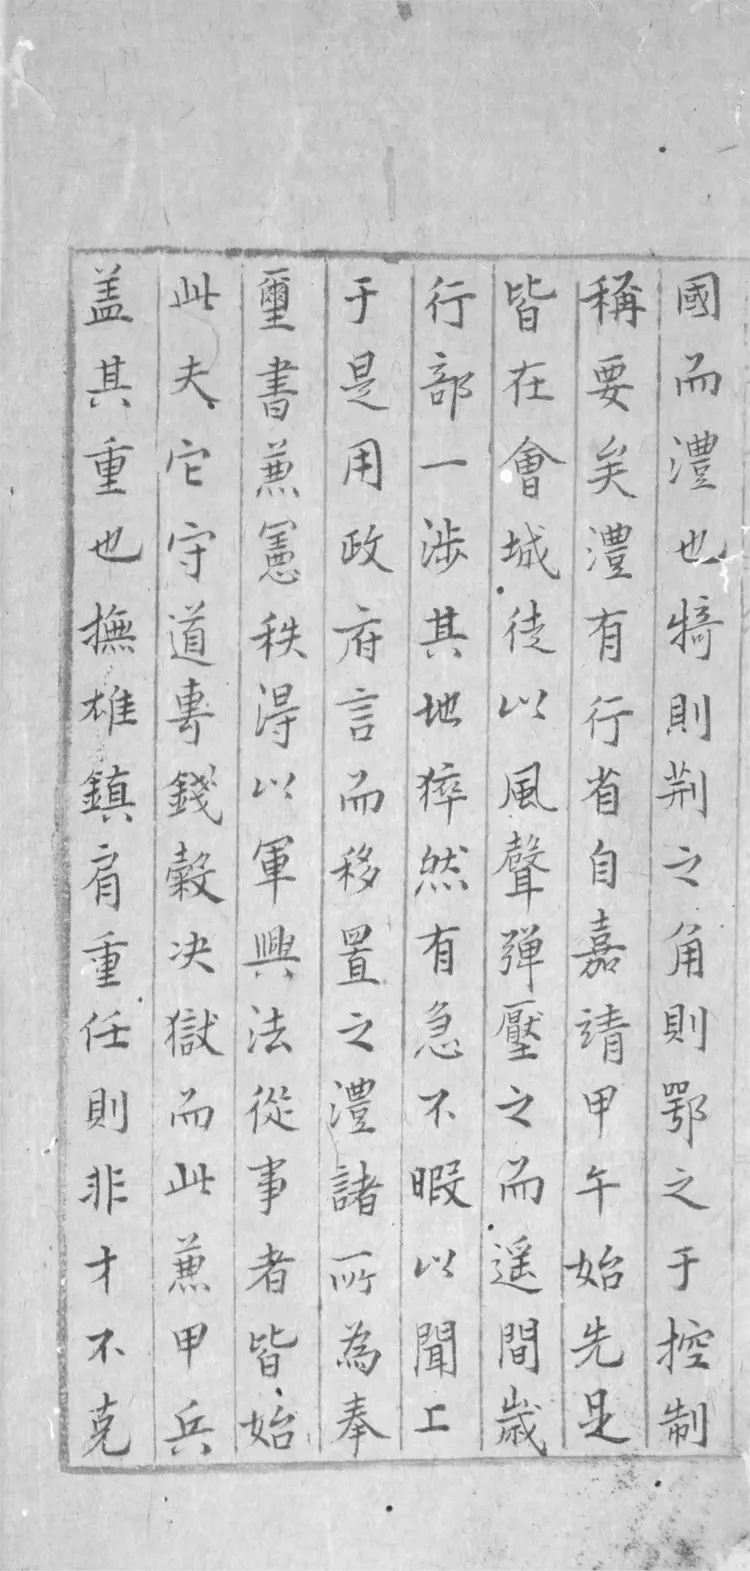 國而澧也犄則荆之角則鄂之于控制
稱要矣澧有行省自嘉靖甲午始先是
皆在會城徒以風聲彈壓之而遥間歲
行部一涉其地猝然有急不暇以聞上
于是用政府言而移置之澧諸所為奉
璽書蕪憲秩淂以軍興法從事者皆始
此夫它守道專錢穀决獄而此蕪甲兵
盖其重也撫雄鎮肩重任則非才不克